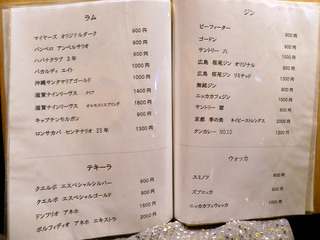 ラム
マイヤーズ オリジナルダーク 900円
パンペロ アンベルサリオ 900円
ハバナクラブ 3年 900円
バカルディ エイト 1000円
沖縄サンタマリアゴールド 1000円
滋賀ナインリーヴス クリア 1400円
滋賀ナインリーヴス 1600円
キャプテンモルガン 900円
ロンサカパ センテナリオ 23年 1300円
テキーラ
クエルボ エスペシャルシルバー 900円
クエルボ エスペシャルゴールド 900円
ドンフリオ アネホ 1600円
ポルフィディオ アネホ エキストラ 2000円
ジン
ビーフィーター 900円
ゴードン 900円
サントリー 六 1000円
広島 桜尾ジン オリジナル 900円
広島 桜尾ジン リミテッド 1300円
無銘ジン 900円
ニッカカフェジン 1000円
サントリー 900円
京都 季の美 ネイビーストレングス 2000円
タンカレー NO.10 1300円
ウォッカ
スミノフ 900円
ズブロッカ 900円
ニッカカフェウォッカ 1000円